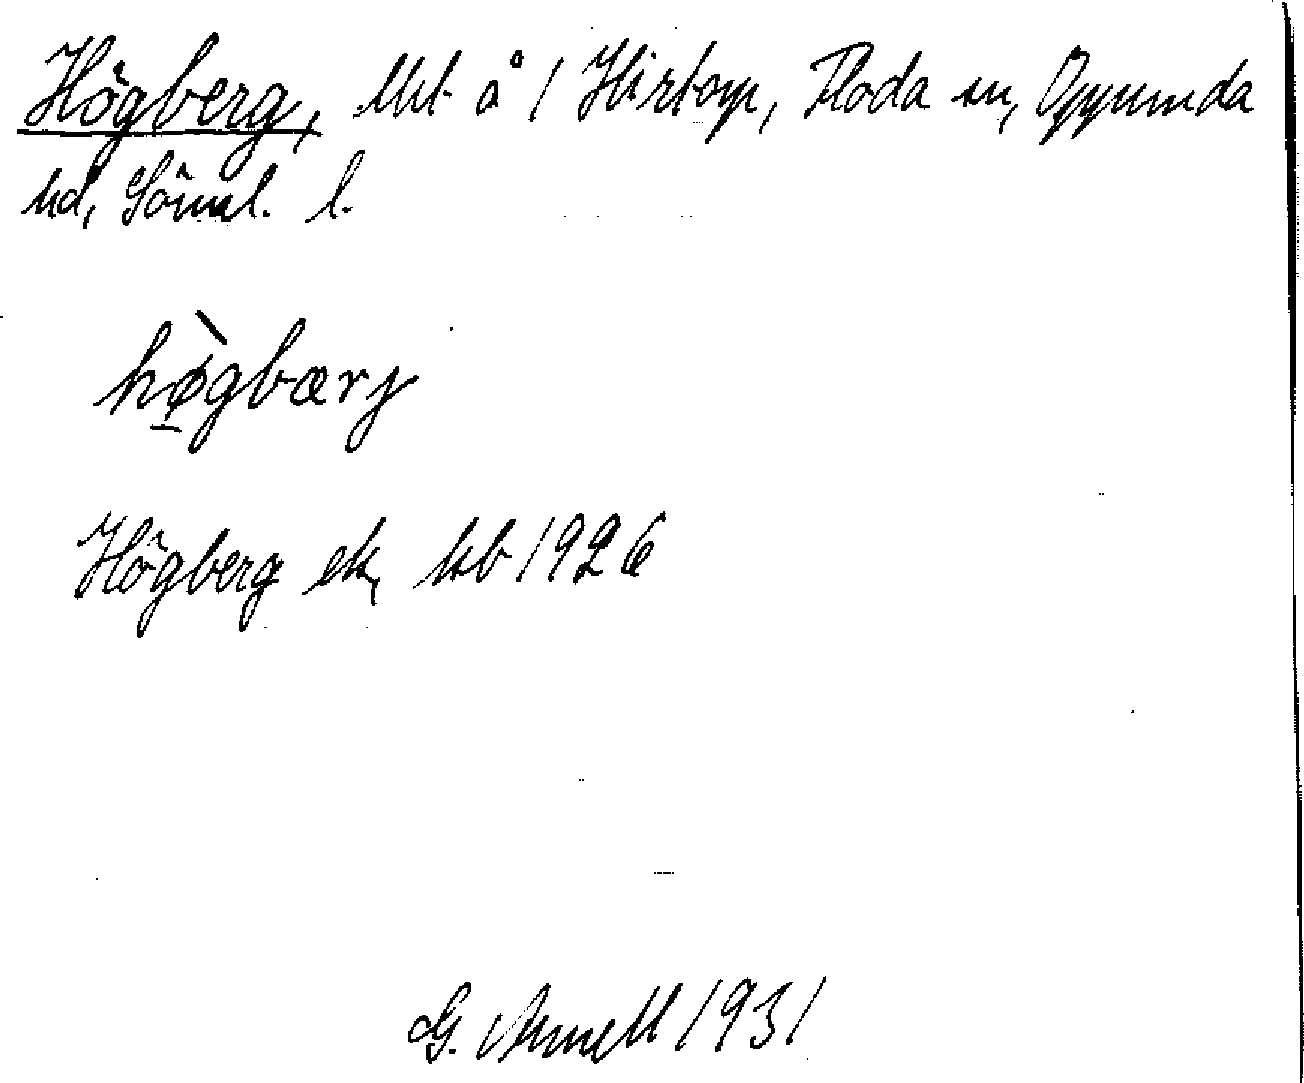 Högberg, lht å 1 Hirtorp, Floda sn, Oppunda
hd, Sörml. l.
hø̀gbærj
Högberg ek, kb 1926
G. Arnell 1931